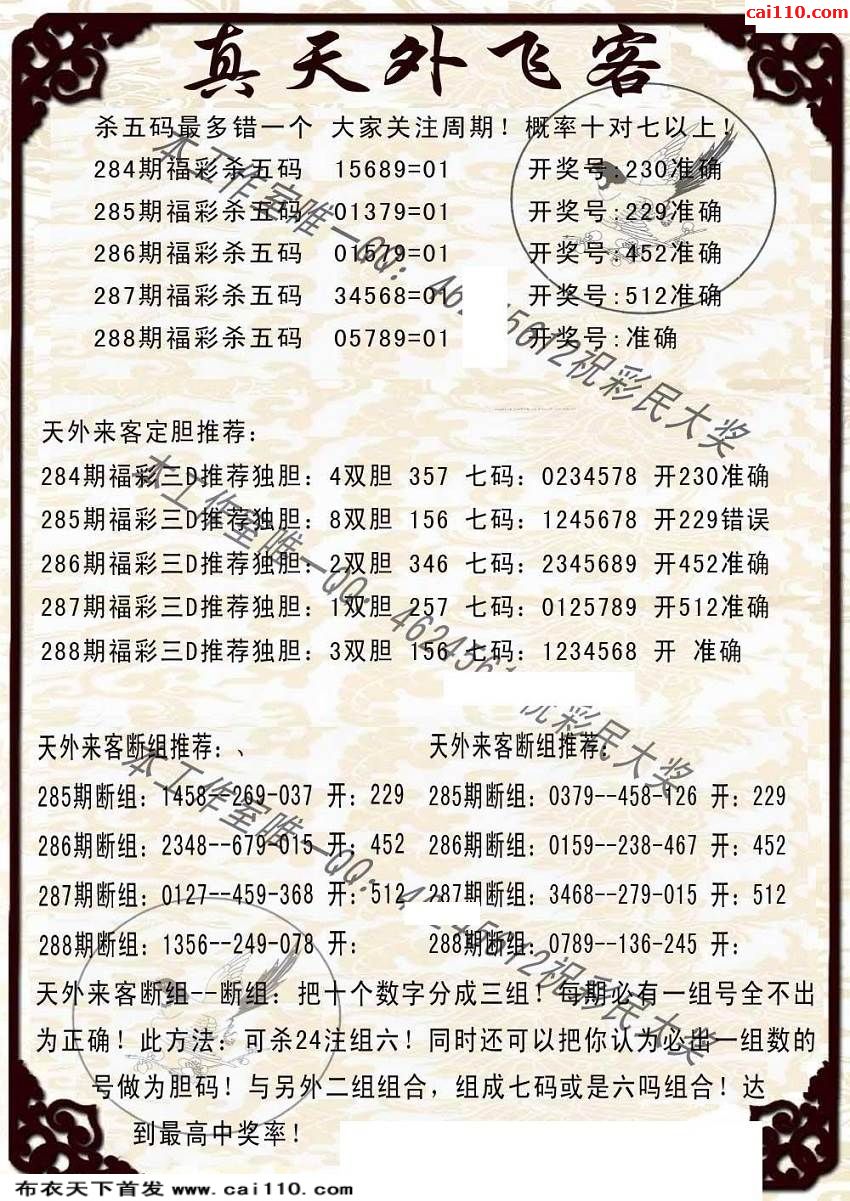 cai110.com
真天外飞客
杀五码最多错一个 大家关注周期！概率十对七以上！
284期福彩杀五码 15689=01 开奖号:230准确
285期福彩杀五码 01379=01 开奖号:229准确
286期福彩杀五码 01579=01 开奖号:452准确
287期福彩杀五码 34568=01 开奖号:512准确
288期福彩杀五码 05789=01 开奖号:准确
天外来客定胆推荐：
284期福彩三D推荐独胆：4双胆 357 七码：0234578 开230准确
285期福彩三D推荐独胆：8双胆 156 七码：1245678 开229错误
286期福彩三D推荐独胆：2双胆 346 七码：2345689 开452准确
287期福彩三D推荐独胆：1双胆 257 七码：0125789 开512准确
288期福彩三D推荐独胆：3双胆 156 七码：1234568 开 准确
天外来客断组推荐：、
285期断组：1458--269-037 开：229
286期断组：2348--679-015 开：452
287期断组：0127--459-368 开：512
288期断组：1356--249-078 开：
天外来客断组推荐：
285期断组：0379--458-126 开：229
286期断组：0159--238-467 开：452
287期断组：3468--279-015 开：512
288期断组：0789--136-245 开：
天外来客断组--断组：把十个数字分成三组！每期必有一组号全不出
为正确！此方法：可杀24注组六！同时还可以把你认为必出一组数的
号做为胆码！与另外二组组合，组成七码或是六吗组合！达
到最高中奖率！
本工作室唯一QQ：46 5612祝彩民大奖
本工作室唯一QQ：462456 祝彩民大奖
本工作室唯一QQ：4 45612祝彩民大奖
布衣天下首发 www.cai110.com